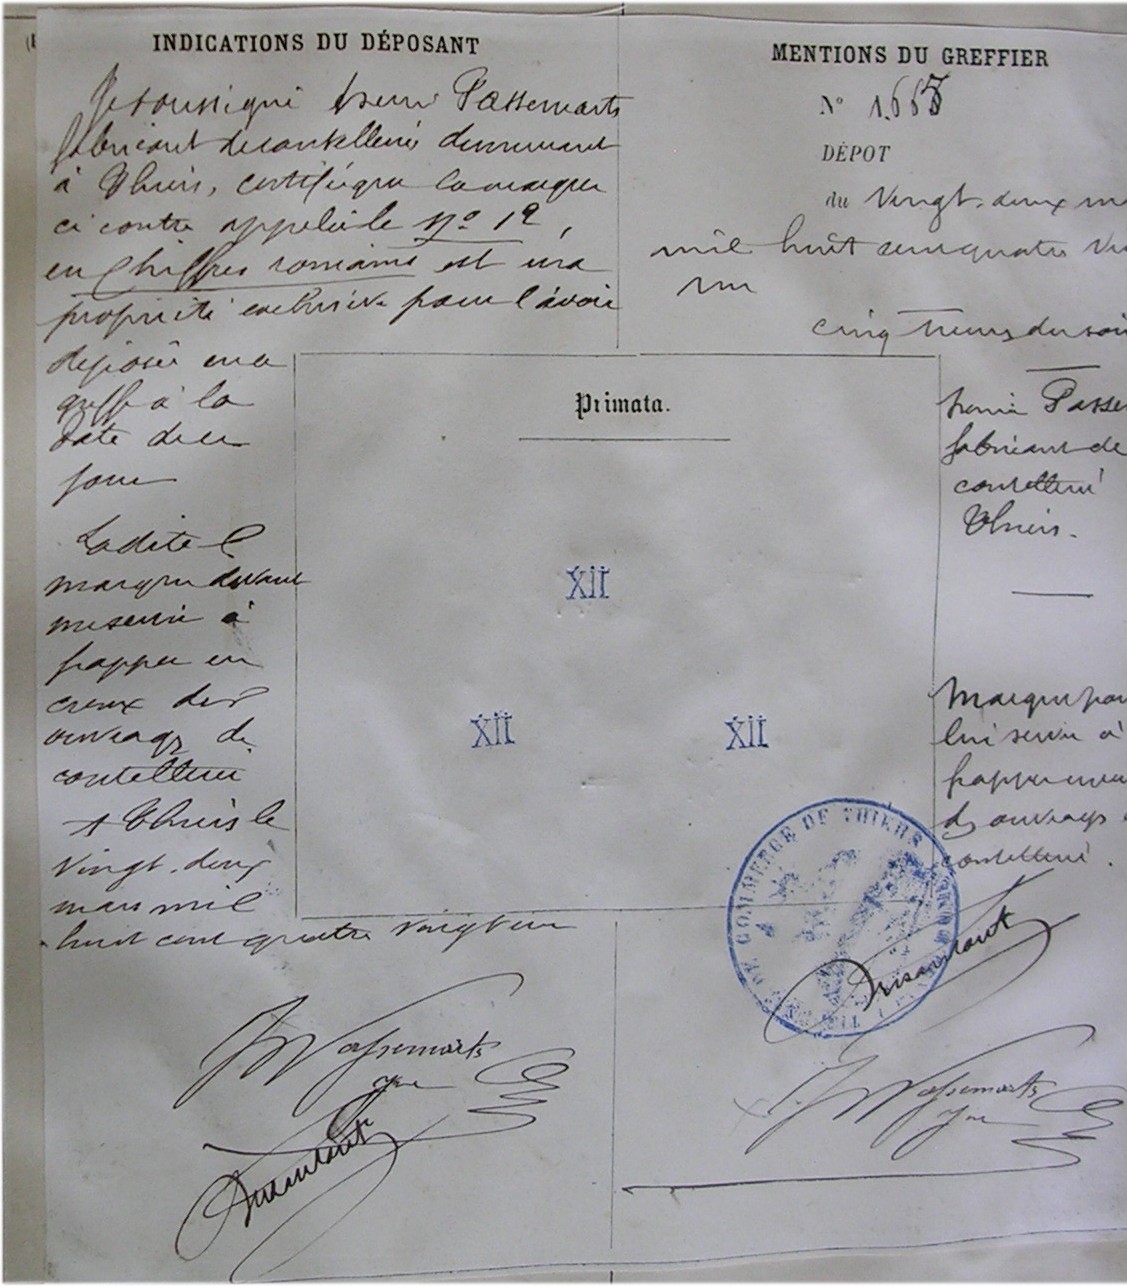 INDICATIONS DU DÉPOSANT
Je soussigné Henri Passemarts
fabricant de coutellerie demeurant
à Thiers, certifie que la marque
ci contre appelée le No 12,
en Chiffres romains est ma
propriété exclusive pour l'avoir
déposée au
greffe à la
date de ce
jour
La dite
marque devant
me servir à
frapper en
creux des
ouvrages de
coutellerie
A Thiers le
vingt-deux
mars mil
huit cent quatre vingt un
MENTIONS DU GREFFIER
No 1.667
DÉPOT
du Vingt-deux
mil huit cent quatre
un
cinq heures du soir
Primata.
XII
XII
XII
Henri Passe
fabricant de
coutellerie
Thiers.
Marque pou
lui servir à
frapper
des ouvrages
coutellerie.
DE COMMERCE DE THIERS
Passemarts
jne
Passemarts
jne